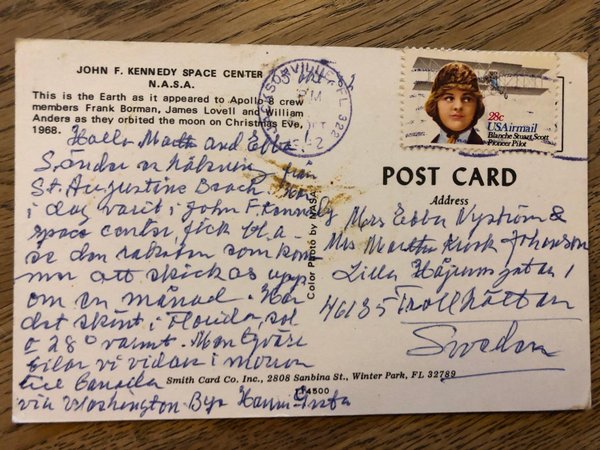 JOHN F. KENNEDY SPACE CENTER
N.A.S.A.
This is the Earth as it appeared to Apollo 8 crew
members Frank Borman, James Lovell and William
Anders as they orbited the moon on Christmas Eve,
1968.
Hallo and Ebba
Sänder en hälsning från
St. Augustine Beach. Har
i dag varit i John F. Kennedy
space center, fick bl.a.
se den raketen som kom
mer att skickas upp
om en månad. Har
det skönt i Florida, sol
o 28° varmt. Men tyvärr
bilar vi vidare i morron
till Canada
via Washington
JACKSONVILLE, FL 322
PM
28c
USAirmail
Blanche Stuart Scott
Pioneer Pilot
POST CARD
Address
Mrs Ebba Nyström &
Mrs Martha
Lilla 1
46135 Trollhättan
Sweden
Color Photo by NASA
Smith Card Co. Inc., 2808 Sanbina St., Winter Park, FL 32789